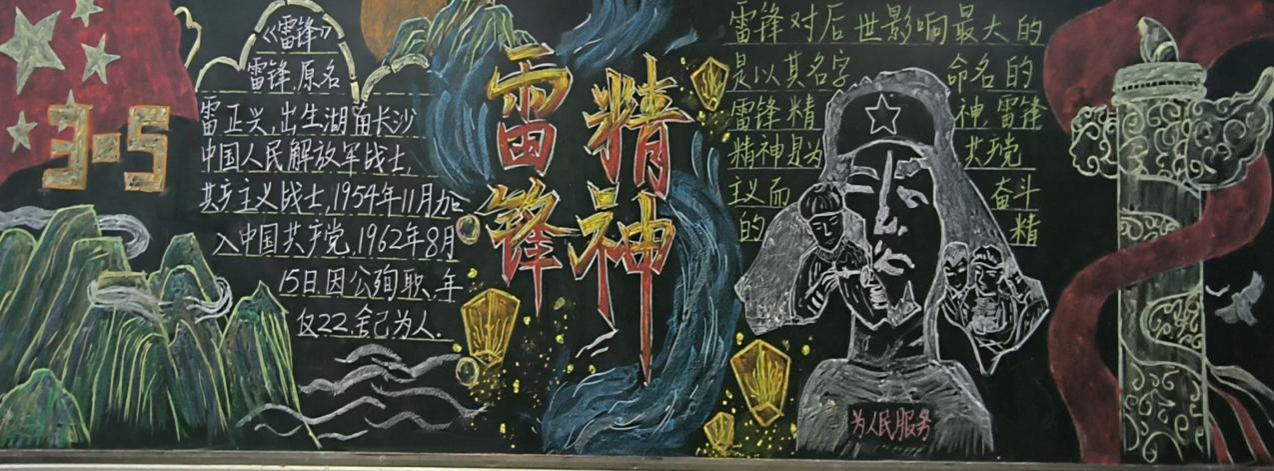 3-5
《雷锋》
雷锋,原名
雷正兴,出生湖南长沙
中国人民解放军战士,
共产主义战士,1954年11月加
入中国共产党,1962年8月
15日因公殉职,年
仅22.舍己为人.
雷锋
精神
雷锋对后世影响最大的
是以其名字命名的
雷锋精神,雷锋
精神是为共产党
主义而奋斗
的精
为人民服务